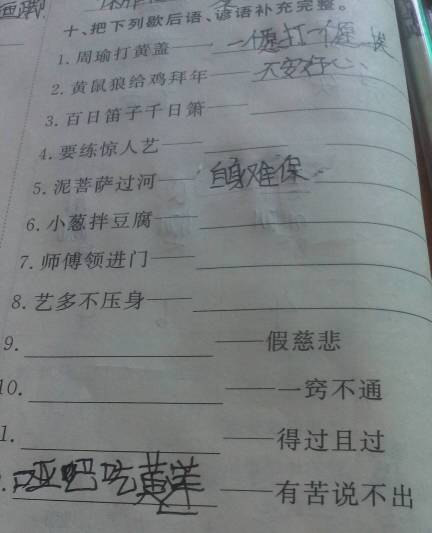 十、把下列歇后语、谚语补充完整。
1.周瑜打黄盖——一个愿打一个愿挨
2.黄鼠狼给鸡拜年——不安好心
3.百日笛子千日箫——
4.要练惊人艺——
5.泥菩萨过河——自身难保
6.小葱拌豆腐——
7.师傅领进门——
8.艺多不压身——
9.——假慈悲
10.——一窍不通
1.——得过且过
哑吧吃黄连——有苦说不出